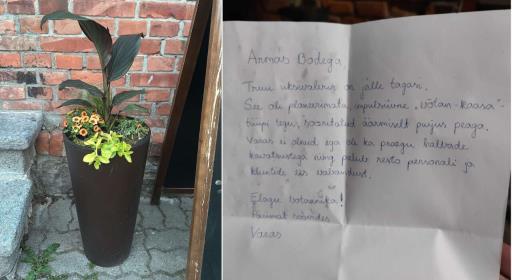 Armas Bodega
Truu uksevalvur on jälle tagasi.
See oli planeerimata, impulsiivne "võtan-kaasa"-
tüüpi tegu, sooritatud äärmiselt purjus peaga.
Varas ei olnud ega ole ka praegu halbade
kavatsustega ning palub resto personali ja
klientide ees vabandust.
Elagu botaanika!
Parimat soovides
Varas